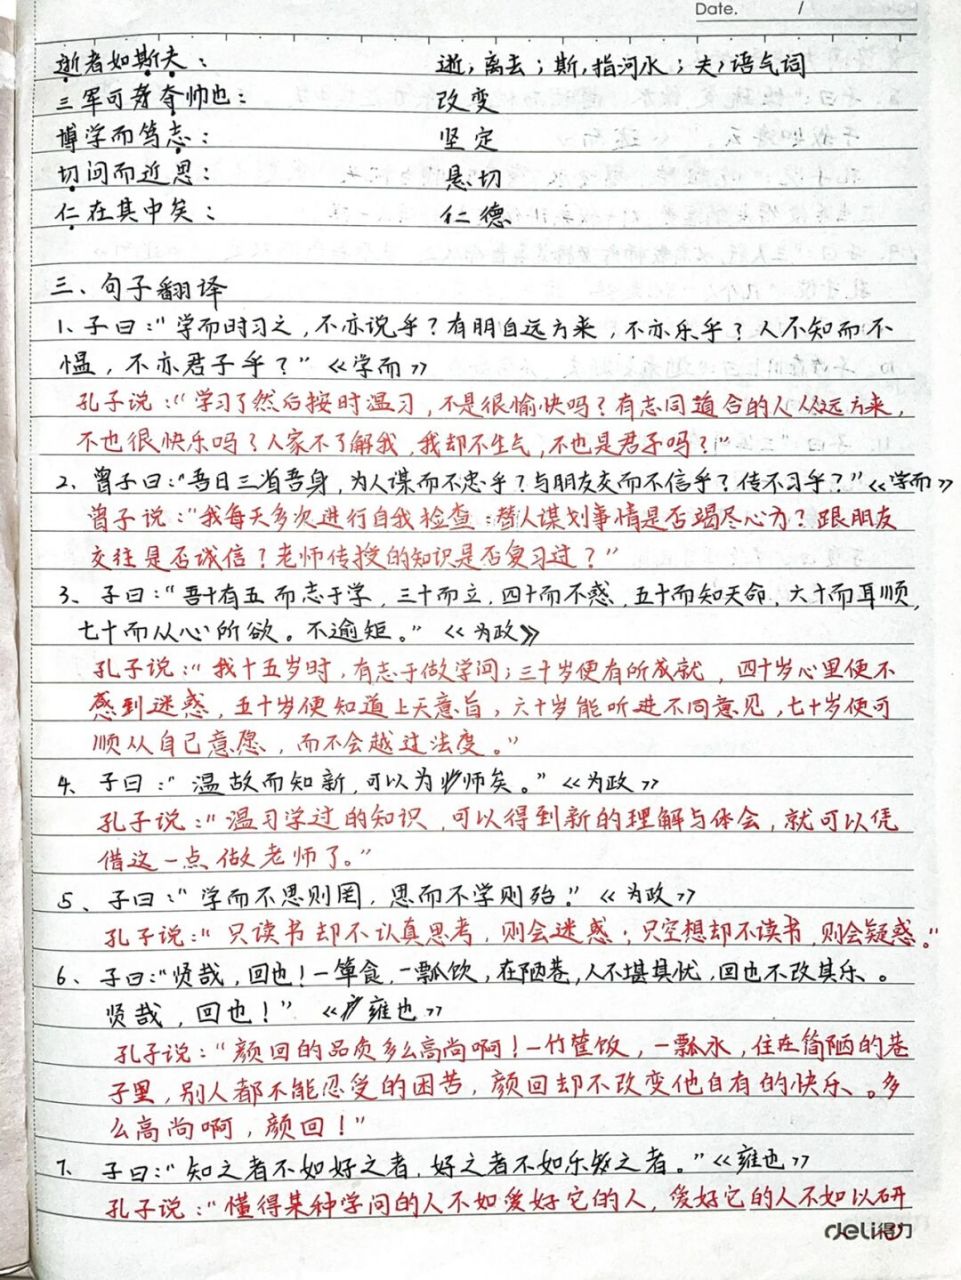 Date. /
逝者如斯夫： 逝，离去；斯，指河水；夫，语气词
三军可夺帅也： 改变
博学而笃志： 坚定
切问而近思： 恳切
仁在其中矣： 仁德
三、句子翻译
1、子曰：“学而时习之，不亦说乎？有朋自远方来，不亦乐乎？人不知而不
愠，不亦君子乎？”《学而》
孔子说：“学习了然后按时温习，不是很愉快吗？有志同道合的人从远方来，
不也很快乐吗？人家不了解我，我却不生气，不也是君子吗？”
2、曾子曰：“吾日三省吾身，为人谋而不忠乎？与朋友交而不信乎？传不习乎？”《学而》
曾子说：“我每天多次进行自我检查：替人谋划事情是否竭尽心力？跟朋友
交往是否诚信？老师传授的知识是否复习过？”
3、子曰：“吾十有五而志于学，三十而立，四十而不惑，五十而知天命，六十而耳顺，
七十而从心所欲。不逾矩。”《为政》
孔子说：“我十五岁时，有志于做学问；三十岁便有所成就，四十岁心里便不
感到迷惑，五十岁便知道上天意旨，六十岁能听进不同意见，七十岁便可
顺从自己意愿，而不会越过法度。”
4、子曰：“温故而知新，可以为师矣。”《为政》
孔子说：“温习学过的知识，可以得到新的理解与体会，就可以凭
借这一点做老师了。”
5、子曰：“学而不思则罔，思而不学则殆。”《为政》
孔子说：“只读书却不认真思考，则会迷惑；只空想却不读书，则会疑惑。”
6、子曰：“贤哉，回也！一箪食，一瓢饮，在陋巷，人不堪其忧，回也不改其乐。
贤哉，回也！”《雍也》
孔子说：“颜回的品质多么高尚啊！一竹筐饭，一瓢水，住在简陋的巷
子里，别人都不能忍受的困苦，颜回却不改变他自有的快乐。多
么高尚啊，颜回！”
7、子曰：“知之者不如好之者，好之者不如乐之者。”《雍也》
孔子说：“懂得某种学问的人不如爱好它的人，爱好它的人不如以研
deli得力